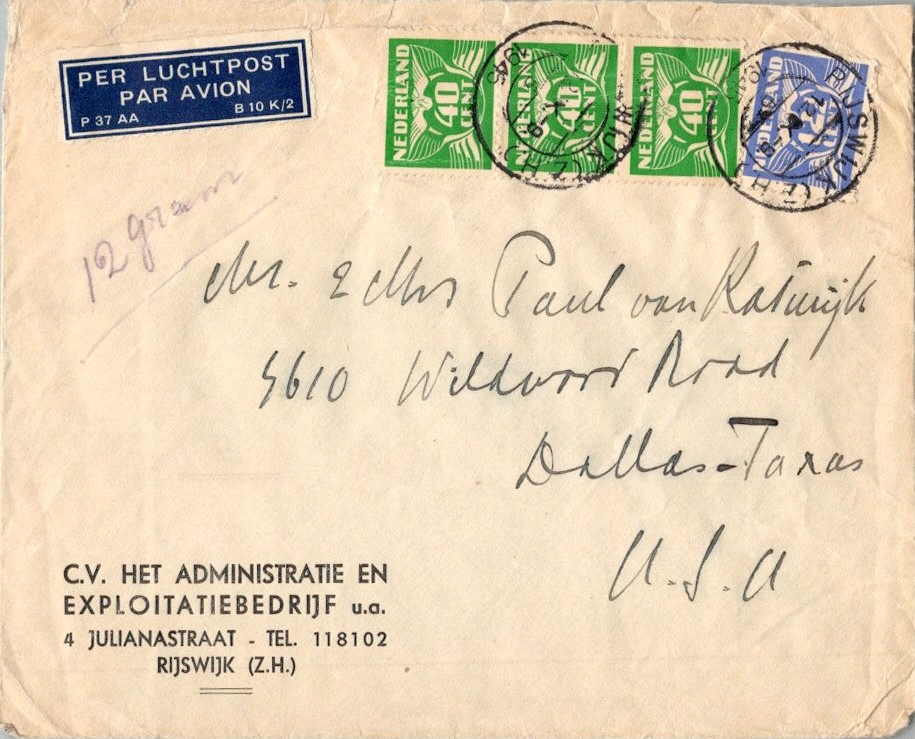 PER LUCHTPOST
PAR AVION
P 37 AA B 10 K/2
NEDERLAND 40 CENT
NEDERLAND 40 CENT
NEDERLAND 40 CENT
NEDERLAND
RIJSWIJK (Z.H.)
1945
RIJSWIJK (Z.H.)
12 gram
Mr. & Mrs Paul van Katwijk
5610 Wildwood Road
Dallas-Taxas
U.S.A
C.V. HET ADMINISTRATIE EN
EXPLOITATIEBEDRIJF u.a.
4 JULIANASTRAAT - TEL. 118102
RIJSWIJK (Z.H.)